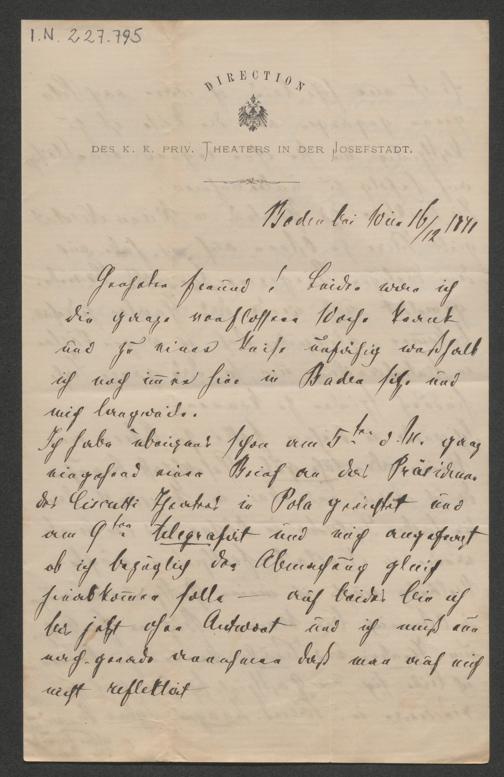 I.N. 227.795
DIRECTION
DES K. K. PRIV. THEATERS IN DER JOSEFSTADT.
Baden bei Wien 16/12 1891
Geehrter Freund! Leider war ich
die ganze verflossene Woche krank
und zu einer Reise unfähig weßhalb
ich noch immer hier in Baden sitze und
mich langweile.
Ich habe übrigens schon am 5ten d. M. ganz
eingehend einen Brief an das Präsidium
des Ciscutti Theaters in Pola gerichtet und
am 9ten telegrafirt und mich angefragt
ob ich bezüglich der Abmachung gleich
hinabkommen solle – auf beides bin ich
bis jetzt ohne Antwort und ich muß nun
nach gerade annehmen daß man auf mich
nicht reflektirt